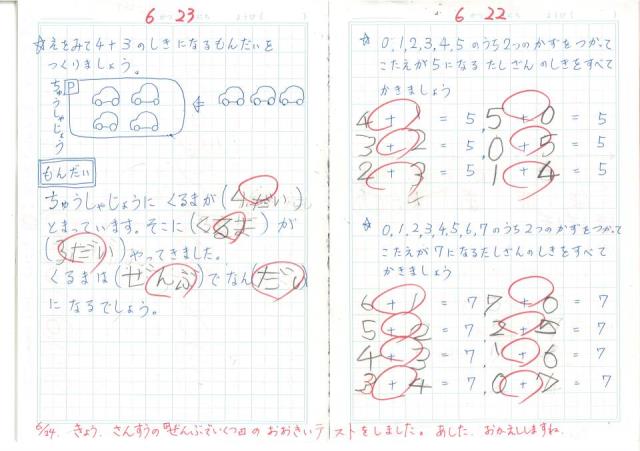 6 がつ 23 にち ようび( )
☆えをみて4+3のしきになるもんだいを
つくりましょう。
P
ちゅうしゃじょう
もんだい
ちゅうしゃじょうに くるまが(4だい)
とまっています。そこに(くるま)が
(3だい)やってきました。
くるまは(ぜんぶ)でなん(だい)
になるでしょう。
6 がつ 22 にち ようび( )
☆ 0,1,2,3,4,5のうち2つのかずをつかって
こたえが5になるたしざんのしきをすべて
かきましょう
4 + 1 = 5, 5 + 0 = 5
3 + 2 = 5, 0 + 5 = 5
2 + 3 = 5, 1 + 4 = 5
☆ 0,1,2,3,4,5,6,7のうち2つのかずをつかって
こたえが7になるたしざんのしきをすべて
かきましょう
6 + 1 = 7, 7 + 0 = 7
5 + 2 = 7, 2 + 5 = 7
4 + 3 = 7, 1 + 6 = 7
3 + 4 = 7, 0 + 7 = 7
6/24. きょう、さんすうの『ぜんぶでいくつ』のおおきいテストをしました。あした、おかえししますね。